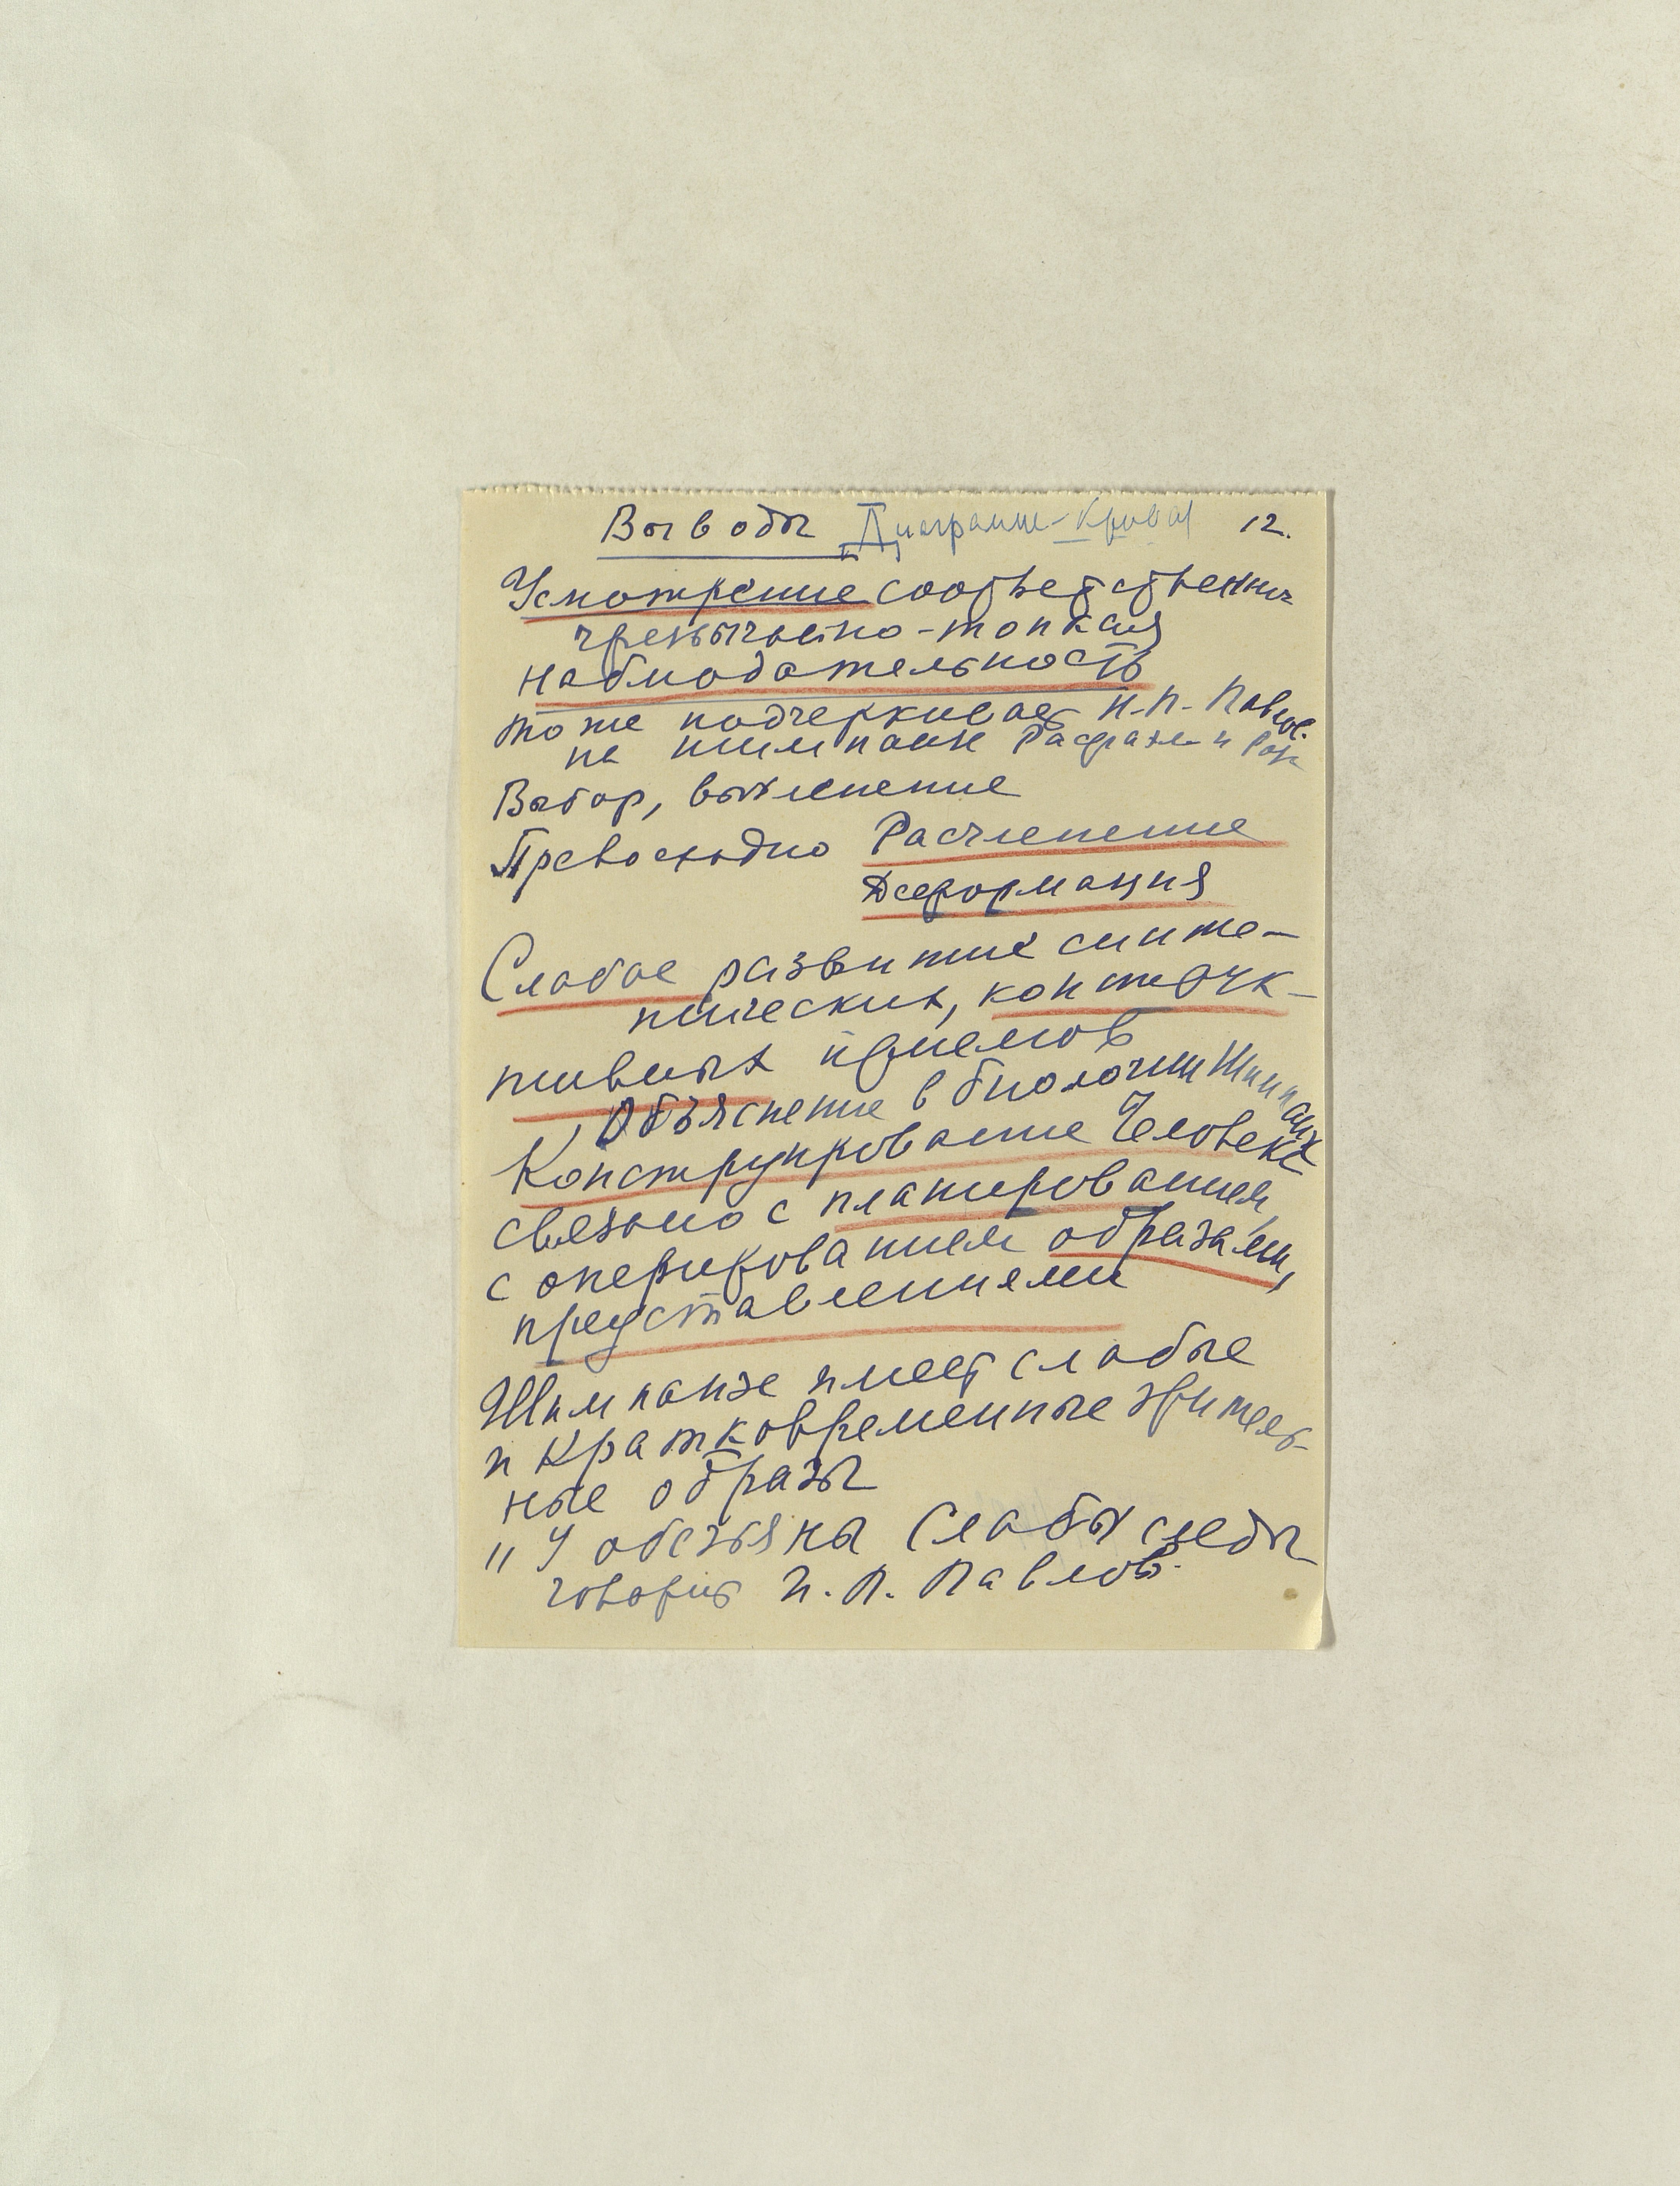 Выводы Диаграмме-Кривая 12.
Усмотрение соответствени
чрезвычайно-тонкая
наблюдательность
тоже подчеркивает И.П. Павлов.
на шимпанзе Рафаэль и Роза
Выбор, вычленение
Превосходно Расчленение
Деформация
Слабое развитие синте-
тических, конструк-
тивных приемов
Объяснение в биологии Шимпанзе
Конструирование Человека
связано с планированием,
с оперированием образами,
представлениями
Шимпанзе имеет слабые
и кратковременные зритель-
ные образы
"У обезьяны Слабы следы
говорит И.П. Павлов.